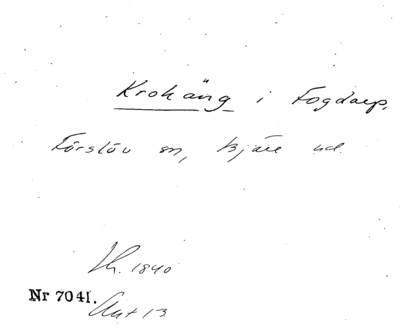 Krohäng i Fogdarp,
Förslöv sn, Bjäre hd.
Lh. 1840
Nr 7041.
Aut 13